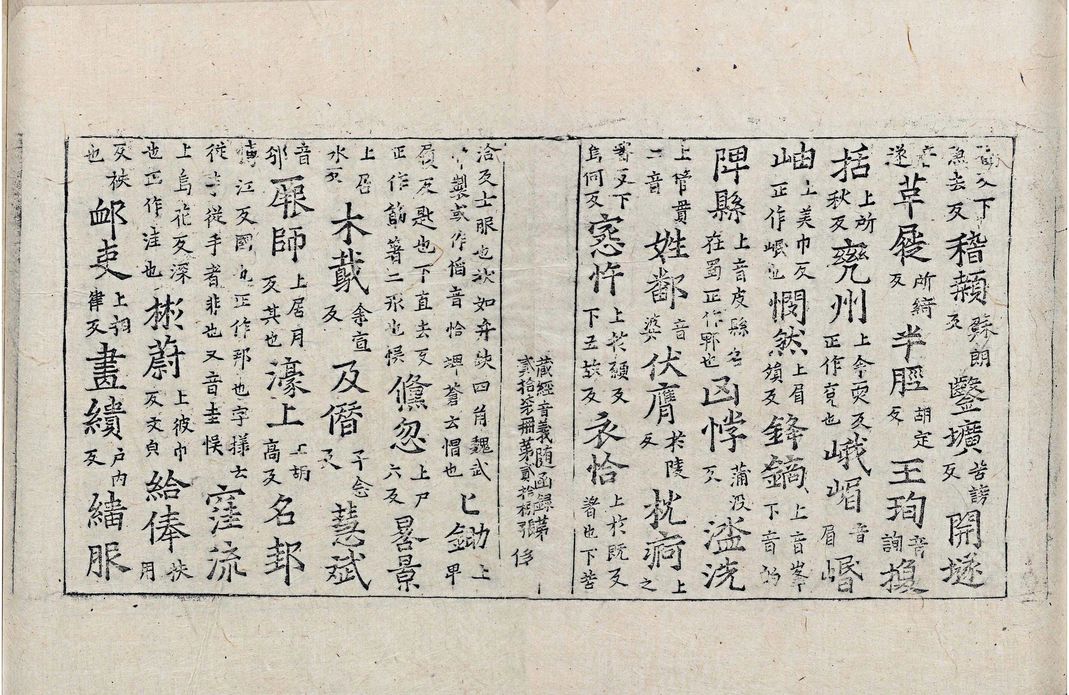 反下
魚去反稽顙蘇朗反鑿壙苦謗反開㙇
音遂草屣所綺反半脛胡定反王珣音詢㨞
括上所秋反兖州上余耎反正作兗也峨嵋音眉㟭
岫上美巾反正作岷也憫然上眉殞反鋒鏑上音峯下音的
䧅縣上音皮縣名在蜀正作郫也凶悖蒲没反盥洗
上管貫二音姓鄱音婆伏膺於陵反枕痾上之
審反下烏何反窓忤下五故反衣恰上於既反著也下苦
藏經音義随函録第
貳拾柒冊第貳拾捌張
洽反士服也状如弁缺四角魏武帝製或作㡊音恰埤蒼云帽也匕鋤上卑
履反匙也下直去反正作筯箸二形也悮倏忽上尸六反晷景
上居水反木蕺余宣反及僭子念反慧斌
音邠厥師上居月反其也濠上上胡高反名邽
博江反國名正作邦也字樣云從手從手者非也又音圭悮窪流
上烏花反深也正作洼也彬蔚上彼巾反文皃給俸扶用
反袟也衂吏上翔律反畫繢戶内反緇服